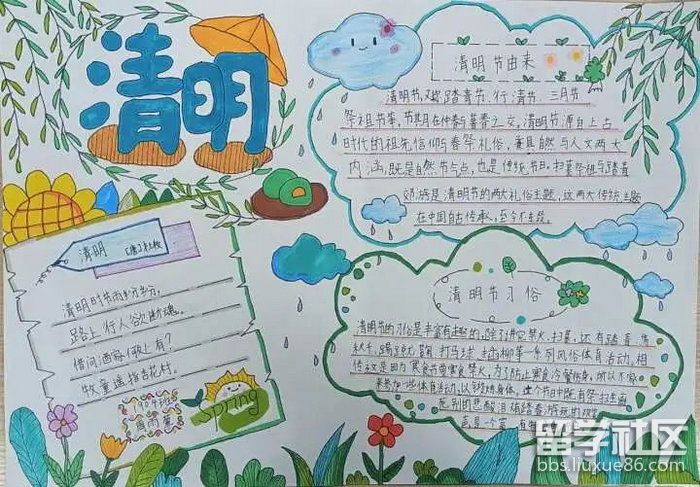 清明
清明节由来
清明节,又称踏青节、行清节、三月节、
祭祖节等,节期在仲春与暮春之交。清明节源自上古
时代的祖先信仰与春祭礼俗,兼具自然与人文两大
内涵,既是自然节气点,也是传统节日,扫墓祭祖与踏青
郊游是清明节的两大礼俗主题,这两大传统主题
在中国自古传承,至今不辍。
清明 【唐】杜牧
清明时节雨纷纷,
路上行人欲断魂。
借问酒家何处有?
牧童遥指杏花村。
Spring
清明节习俗
清明节的习俗是丰富有趣的,除了讲究禁火、扫墓,还有踏青、荡
秋千、蹴鞠、打马球、插柳等一系列风俗体育活动。相
传这是因为寒食节要寒食禁火,为了防止寒食冷餐伤身,所以大家
来参加一些体育活动,以锻炼身体。
留学社区
bbs.liuxue86.com